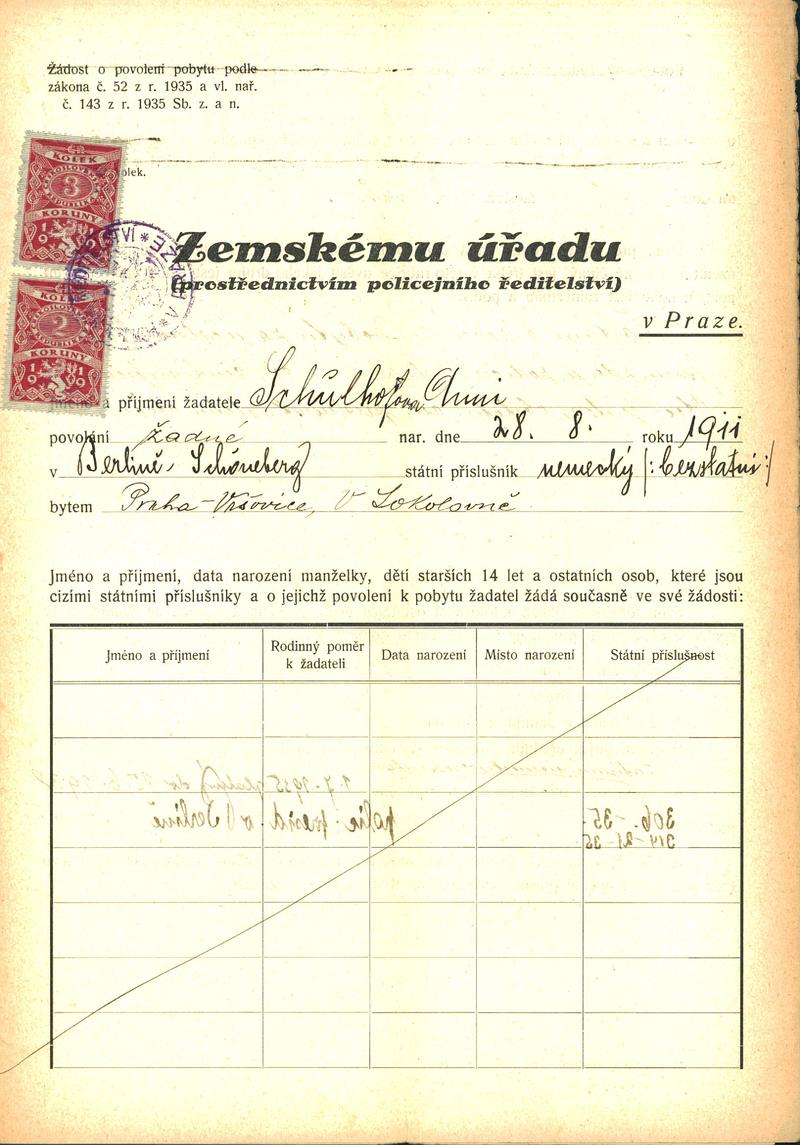 Žádost o povolení pobytu podle
zákona č. 52 z r. 1935 a vl. nař.
č. 143 z r. 1935 Sb. z. a n.
olek.
KOLEK
3
KORUNY
1919
KOLEK
2
KORUNY
1919
Zemskému úřadu
(prostřednictvím policejního ředitelství)
v Praze.
a příjmení žadatele Schulhofova Anni
povolání žádné nar. dne 28. 8. roku 1911
v Berlíně, Schöneberg státní příslušník nemecký (: bezstatní :)
bytem Praha-Vršovice, V Sokolovně
Jméno a příjmení, data narození manželky, dětí starších 14 let a ostatních osob, které jsou
cizími státními příslušníky a o jejichž povolení k pobytu žadatel žádá současně ve své žádosti:
Jméno a příjmení Rodinný poměr k žadateli Data narození Místo narození Státní příslušnost